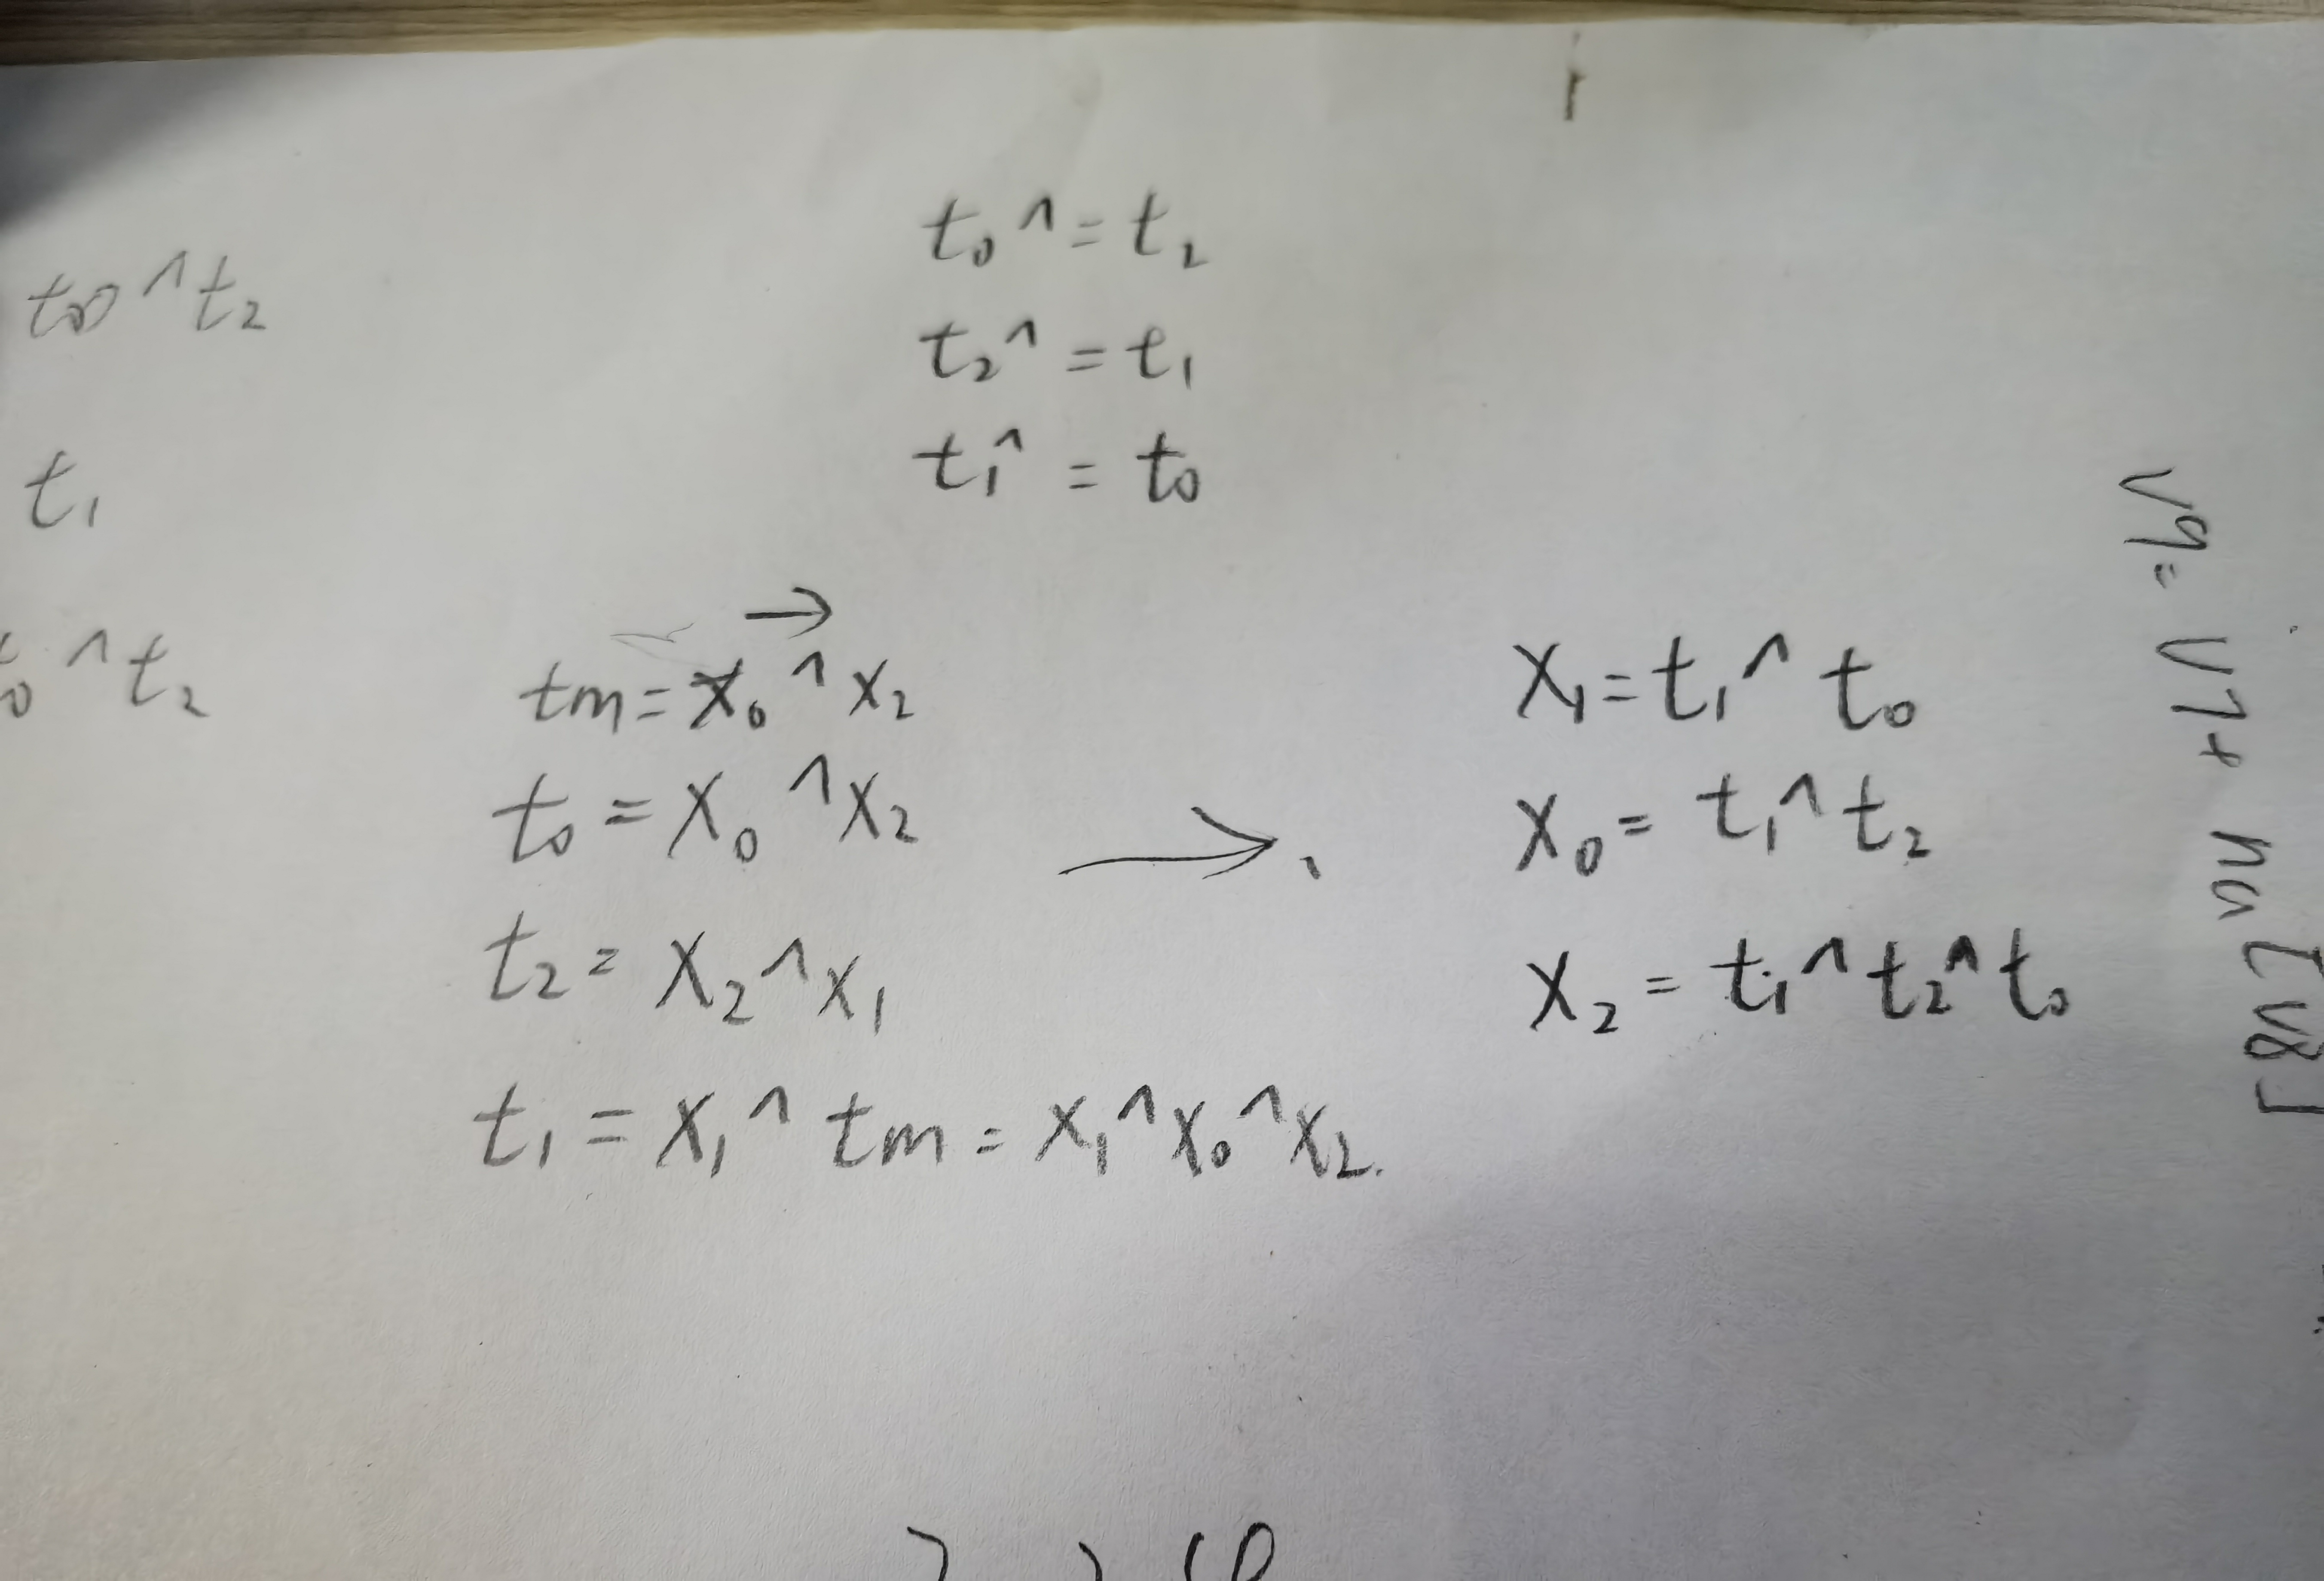 t₀ ^= t₂
t₂ ^= t₁
t₁ ^= t₀
t₀ ^ t₂
t₁
t₀ ^ t₂
→
tm = x₀ ^ x₂
t₀ = x₀ ^ x₂
t₂ = x₂ ^ x₁
t₁ = x₁ ^ tm = x₁ ^ x₀ ^ x₂.
→
x₁ = t₁ ^ t₀
x₀ = t₁ ^ t₂
x₂ = t₁ ^ t₂ ^ t₀
v9 = v7 +